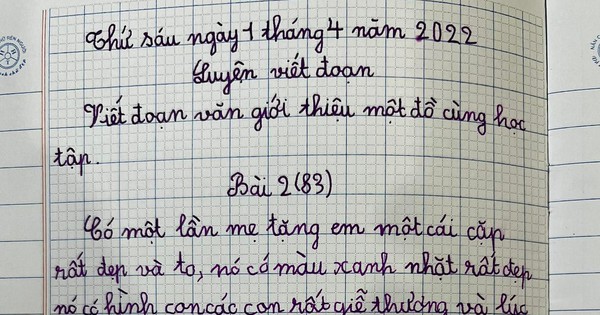 Thứ sáu ngày 1 tháng 4 năm 2022
Luyện viết đoạn
Viết đoạn văn giới thiệu một đồ cùng học
tập.
Bài 2 (83)
Có một lần mẹ tặng em một cái cặp
rất đẹp và to, nó có màu xanh nhặt rất đẹp
nó có hình con các con rất giễ thương và lúc